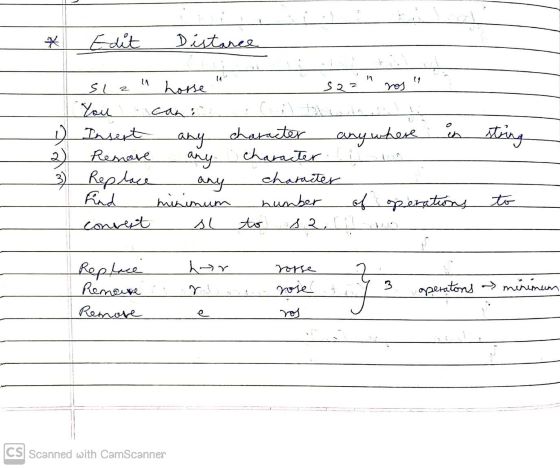 * Edit Distance
s1 = "horse" s2 = "ros"
You can:
1) Insert any character anywhere in string
2) Remove any character
3) Replace any character
Find minimum number of operations to
convert s1 to s2.
Replace h→r rorse
Remove r rose } 3 operations → minimum
Remove e ros
CS Scanned with CamScanner